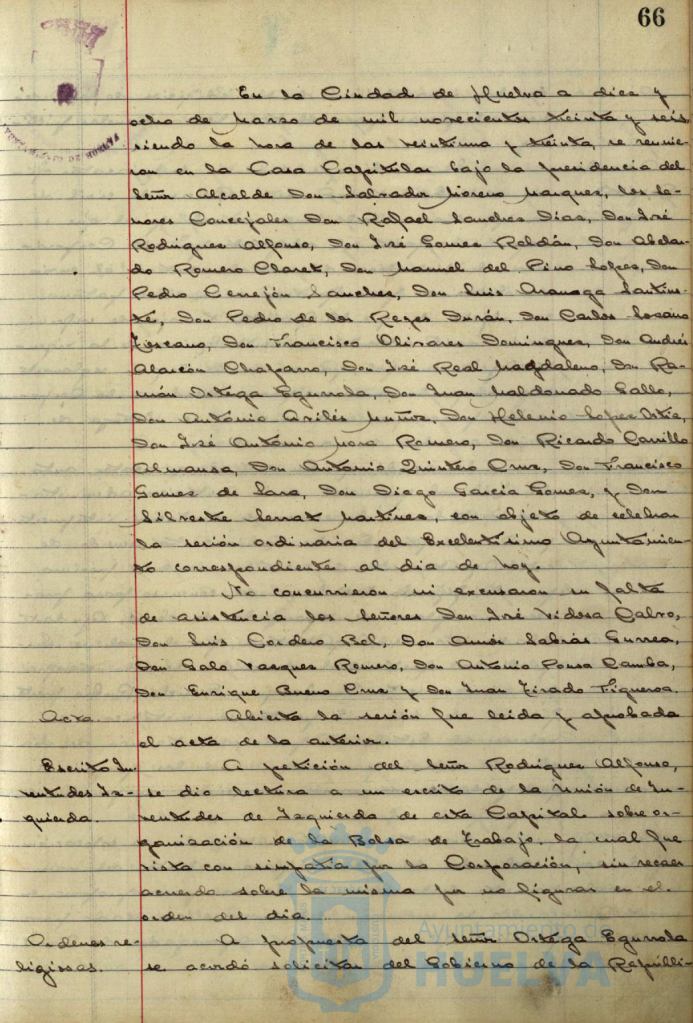 66
En la Ciudad de Huelva a diez y
ocho de Marzo de mil novecientos treinta y seis
siendo la hora de las veintiuna y treinta, se reunie-
ron en la Casa Capitular bajo la presidencia del
Señor Alcalde Don Salvador Moreno Marquez, los Se-
ñores Concejales Don Rafael Sanchez Diaz, Don José
Rodriguez Alfonso, Don José Gomez Roldán, Don Abelar-
do Romero Claret, Don Manuel del Pino Lopez, Don
Pedro Cerrejón Sanchez, Don Luis Aranaga Santins-
té, Don Pedro de los Reyes Durán, Don Carlos Lozano
Toscano, Don Francisco Olivares Dominguez, Don Andrés
Alarcón Chaparro, Don José Real Magdaleno, Don Ra-
món Ortega Egurrola, Don Juan Maldonado Gallo,
Don Antonio Avilés Muñoz, Don Helenio Lopez
Don José Antonio Mora Romero, Don Ricardo Carrillo
Almansa, Don Antonio Quintero Cruz, Don Francisco
Gomez de Lara, Don Diego Garcia Gomez, y Don
Silvestre Serrat Martinez, con objeto de celebrar
la sesión ordinaria del Excelentísimo Ayuntamien-
to correspondiente al dia de hoy.
No concurrieron ni excusaron su falta
de asistencia los Señores Don José Vidosa Calvo,
Don Luis Cordero Bel, Don Amós Sabrás Gurrea,
Don Galo Vazquez Romero, Don Antonio Ponsa Camba,
Don Enrique Bueno Cruz y Don Juan Tirado Figueroa.
Acta.
Abierta la sesión fue leida y aprobada
el acta de la anterior.
Escrito Ju-
ventudes Iz-
quierda.
A petición del Señor Rodriguez Alfonso,
se dio lectura a un escrito de la Unión de Ju-
ventudes de Izquierda de esta Capital sobre or-
ganización de la Bolsa de Trabajo, la cual fue
vista con simpatía por la Corporación, sin recaer
acuerdo sobre la misma por no figurar en el
orden del dia.
Ordenes re-
ligiosas.
A propuesta del Señor Ortega Egurrola
se acordó solicitar del Gobierno de la Repúbli-
Ayuntamiento de
HUELVA